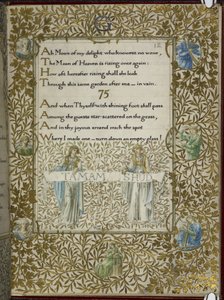 Ah Moon of my delight who know'st no wane,
The Moon of Heaven is rising once again:
How oft hereafter rising shall she look
Through this same garden after me ... in vain.
75
And when Thyself with shining foot shall pass
Among the guests star-scattered on the grass,
And in thy joyous errand reach the spot
Where I made one — turn down an empty glass!
TAMAM SHUD